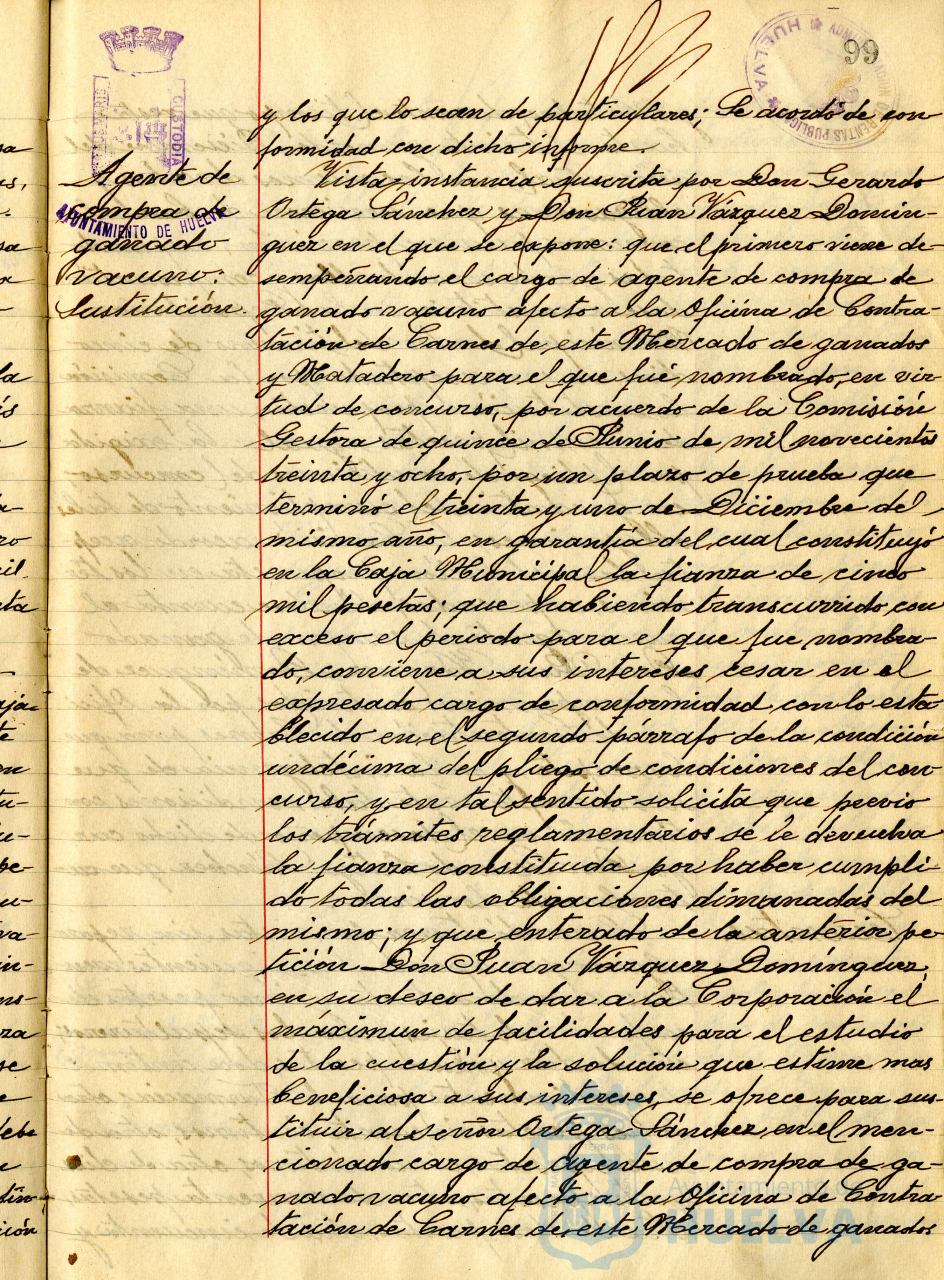 99
y los que lo sean de particulares; Se acordó de con
formidad con dicho informe.
Agente de
compra de
ganado
vacuno:
Sustitución.
AYUNTAMIENTO DE HUELVA
CUSTODIA
HUELVA
Vista instancia suscrita por Don Gerardo
Ortega Sánchez y Don Juan Vázquez Domín-
guez en el que se expone: que el primero viene de-
sempeñando el cargo de agente de compra de
ganado vacuno afecto a la Oficina de Contra-
tación de Carnes de este Mercado de ganados
y Matadero para el que fué nombrado, en vir-
tud de concurso, por acuerdo de la Comisión
Gestora de quince de Junio de mil novecientos
treinta y ocho, por un plazo de prueba que
terminó el treinta y uno de Diciembre del
mismo año, en garantía del cual constituyó
en la Caja Municipal la fianza de cinco
mil pesetas; que habiendo transcurrido con
exceso el periodo para el que fue nombra-
do, conviene a sus intereses cesar en el
expresado cargo de conformidad con lo esta
blecido en el segundo párrafo de la condición
undécima del pliego de condiciones del con
curso, y en tal sentido solicita que previo
los trámites reglamentarios se le devuelva
la fianza constituida por haber cumpli-
do todas las obligaciones dimanadas del
mismo; y que enterado de la anterior pe-
tición Don Juan Vázquez Domínguez,
en su deseo de dar a la Corporación el
máximun de facilidades para el estudio
de la cuestión y la solución que estime mas
beneficiosa a sus intereses, se ofrece para sus-
tituir al señor Ortega Sánchez en el men-
cionado cargo de agente de compra de ga-
nado vacuno afecto a la Oficina de Contra
tación de Carnes de este Mercado de ganados
Ayuntamiento de
HUELVA